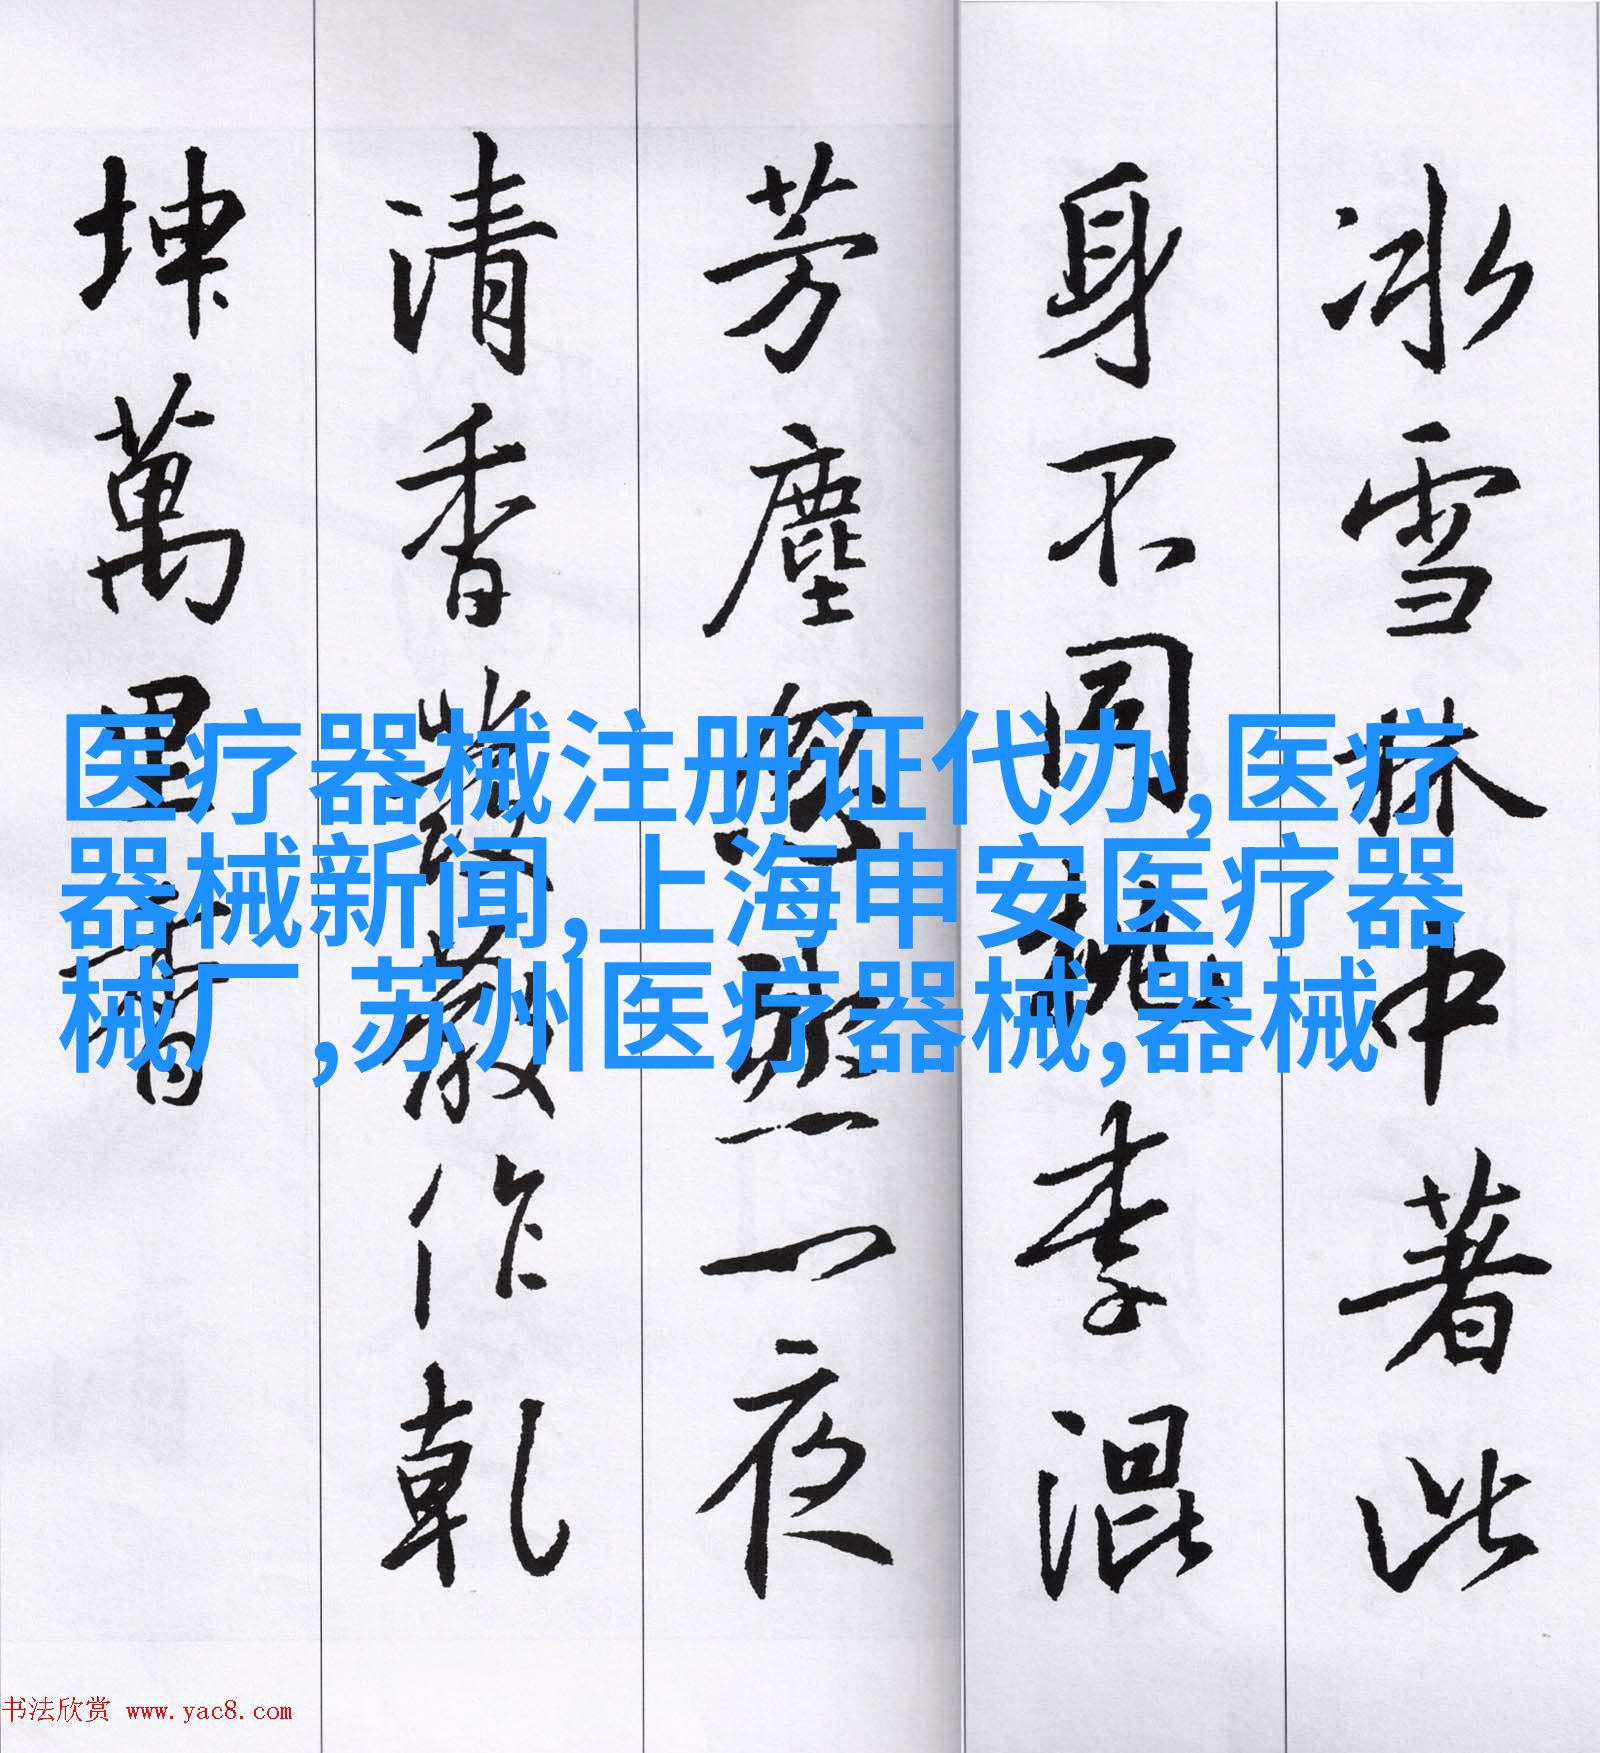 冰雪林中著此
身不同桃李混
芳塵忽然一夜
清香發散作乾
坤萬里春
医疗器械注册证代办,医疗
器械新闻,上海申安医疗器
械厂,苏州医疗器械,器械
书法欣赏 www.yac8.com